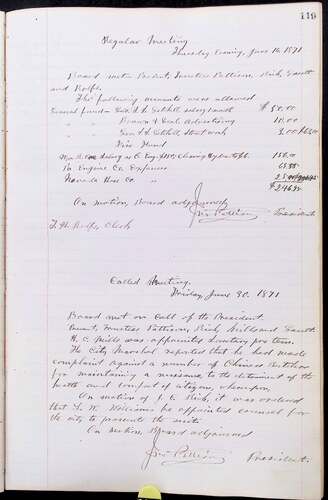 119
Regular Meeting
Thursday Evening, June 1871
Board met Present, Trustees Pattison, Rich,
and Rolfe.
The following accounts were allowed
General fund Geo. A. Getchell salary $50.00
" " Brown & Deal Advertising 10.00
" " Geo. A. Getchell Street work 3.00
Fire Fund
salary as C. Eng. Cleaning 150.00
Pa Engine Co Expenses
Nevada Hose Co "
On motion, Board adjourned
Pattison President
T. H. Rolfe, Clerk
Called Meeting.
Friday, June 30. 1871
Board met on Call of the President.
Present, Trustees Pattison, Rich, Mills and
H. C. Mills was appointed Secretary pro tem.
The City Marshal reported that he had made
complaint against a number of Chinese Butchers
for maintaining a nuisance to the detriment of the
health and comfort of citizens, whereupon
On motion of J. C. Rich, it was ordered
that T. W. Williams be appointed counsel for
the city to prosecute the suits.
On motion Board adjourned
Pattison President.